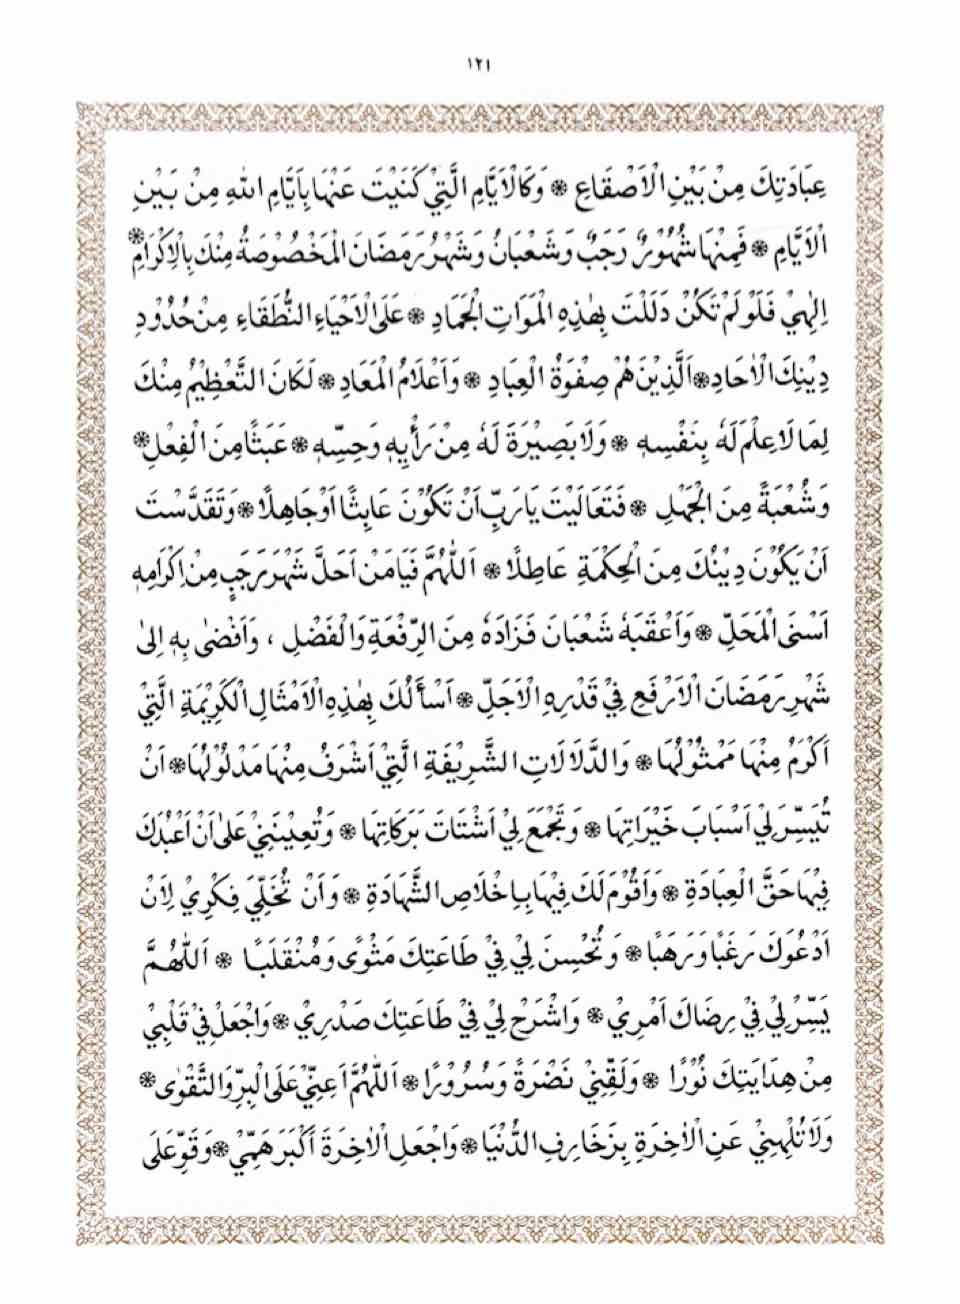 ١٢١
عِبَادَتِكَ مِنْ بَيْنِ الْاَصْقَاعِ ❋ وَكَالْاَيَّامِ الَّتِيْ كَنَيْتَ عَنْهَا بِاَيَّامِ اللهِ مِنْ بَيْنِ
الْاَيَّامِ ❋ فَمِنْهَا شُهُوْرٌ رَجَبٌ وَشَعْبَانُ وَشَهْرُ رَمَضَانَ الْمَخْصُوْصَةُ مِنْكَ بِالْاِكْرَامِ ❋
اِلٰهِيْ فَلَوْ لَمْ تَكُنْ دَلَلْتَ بِهٰذِهِ الْمَوَاتِ الْجَمَادِ ❋ عَلَى الْاَحْيَاءِ النُّطَقَاءِ مِنْ حُدُوْدِ
دِيْنِكَ الْاٰحَادِ ❋ اَلَّذِيْنَ هُمْ صِفْوَةُ الْعِبَادِ ❋ وَاَعْلَامُ الْمَعَادِ ❋ لَكَانَ التَّعْظِيْمُ مِنْكَ
لِمَا لَا عِلْمَ لَهُ بِنَفْسِهٖ ❋ وَلَا بَصِيْرَةَ لَهُ مِنْ رَأْيِهٖ وَحِسِّهٖ ❋ عَبَثًا مِنَ الْفِعْلِ ❋
وَشُعْبَةً مِنَ الْجَهْلِ ❋ فَتَعَالَيْتَ يَا رَبِّ اَنْ تَكُوْنَ عَابِثًا اَوْ جَاهِلًا ❋ وَتَقَدَّسْتَ
اَنْ يَكُوْنَ دِيْنُكَ مِنَ الْحِكْمَةِ عَاطِلًا ❋ اَللّٰهُمَّ فَيَا مَنْ اَحَلَّ شَهْرَ رَجَبٍ مِنْ اِكْرَامِهٖ
اَسْنَى الْمَحَلِّ ❋ وَاَعْقَبَهُ شَعْبَانَ فَزَادَهُ مِنَ الرِّفْعَةِ وَالْفَضْلِ ، وَاَفْضٰى بِهٖ اِلىٰ
شَهْرِ رَمَضَانَ الْاَرْفَعِ فِيْ قَدْرِهِ الْاَجَلِّ ❋ اَسْأَلُكَ بِهٰذِهِ الْاَمْثَالِ الْكَرِيْمَةِ الَّتِيْ
اَكْرَمُ مِنْهَا مَمْثُوْلُهَا ❋ وَالدَّلَالَاتِ الشَّرِيْفَةِ الَّتِيْ اَشْرَفُ مِنْهَا مَدْلُوْلُهَا ❋ اَنْ
تُيَسِّرَ لِيْ اَسْبَابَ خَيْرَاتِهَا ❋ وَتَجْمَعَ لِيْ اَشْتَاتَ بَرَكَاتِهَا ❋ وَتُعِيْنَنِيْ عَلىٰ اَنْ اَعْبُدَكَ
فِيْهَا حَقَّ الْعِبَادَةِ ❋ وَاَقُوْمَ لَكَ فِيْهَا بِاِخْلَاصِ الشَّهَادَةِ ❋ وَاَنْ تُخَلِّيَ فِكْرِيْ لِاَنْ
اَدْعُوَكَ رَغَبًا وَرَهَبًا ❋ وَتُحْسِنَ لِيْ فِيْ طَاعَتِكَ مَثْوًى وَمُنْقَلَبًا ❋ اَللّٰهُمَّ
يَسِّرْ لِيْ فِيْ رِضَاكَ اَمْرِيْ ❋ وَاشْرَحْ لِيْ فِيْ طَاعَتِكَ صَدْرِيْ ❋ وَاجْعَلْ فِيْ قَلْبِيْ
مِنْ هِدَايَتِكَ نُوْرًا ❋ وَلَقِّنِيْ نَضْرَةً وَسُرُوْرًا ❋ اَللّٰهُمَّ اَعِنِّيْ عَلَى الْبِرِّ وَالتَّقْوٰى ❋
وَلَا تُلْهِنِيْ عَنِ الْاٰخِرَةِ بِزَخَارِفِ الدُّنْيَا ❋ وَاجْعَلِ الْاٰخِرَةَ اَكْبَرَ هَمِّيْ ❋ وَقَوِّ عَلَى